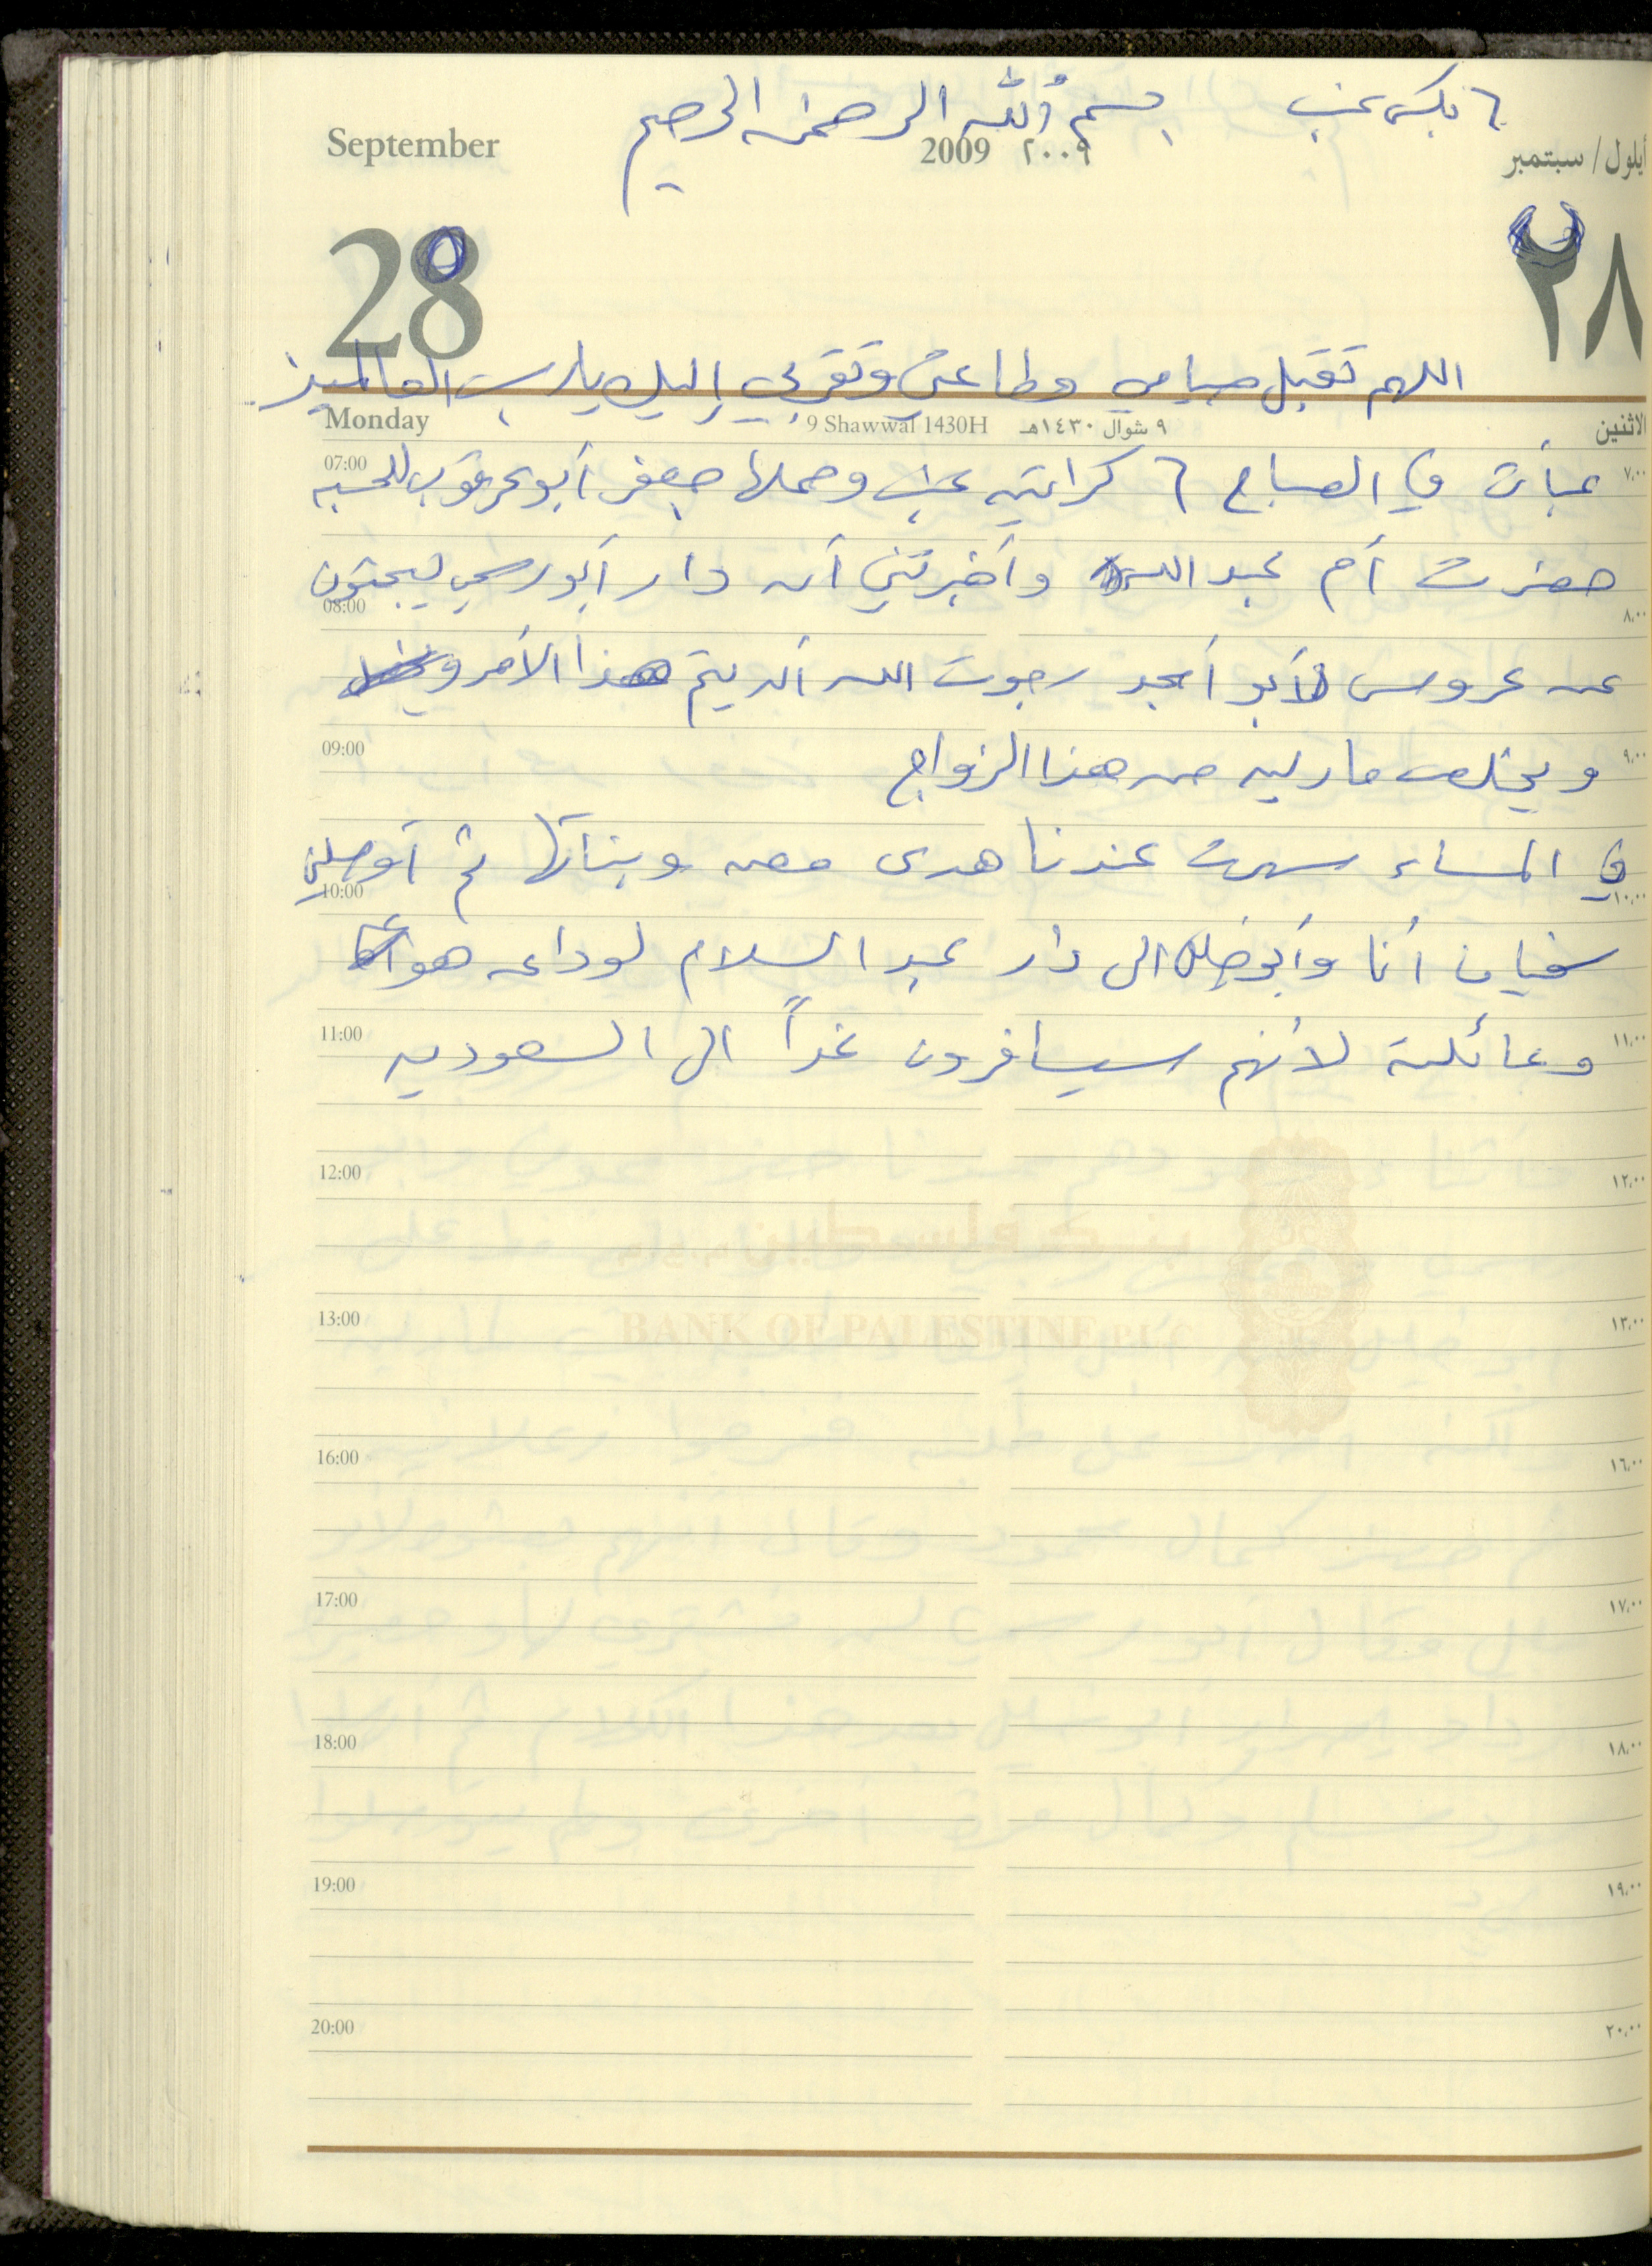 ٦ بكس عنب بسم الله الرحمن الرحيم
September 2009 ٢٠٠٩ أيلول / سبتمبر
28 ٢٨
اللهم تقبل صيامي وطاعتي وتقربي إليك يا رب العالمين
Monday 9 Shawwal 1430H ٩ شوال ١٤٣٠هـ الاثنين
07:00 عبأت في الصباح ٦ كراتين عنب وحملها جعفر أبو عرقوب للحسبه ٧،٠٠
حضرت أم عبد الله وأخبرتني أن دار أبو رسمي يبحثون
08:00 ٨،٠٠
عن عروس لأبو أمجد رجوت الله أن يتم هذا الأمر
09:00 ويخلص ماريه من هذا الزواج ٩،٠٠
في المساء سهرت عندنا هدى معن وبناتها ثم أوصلني
10:00 ١٠،٠٠
سفيان أنا وأبو خليل الى دار عبد السلام لوداعه هو
11:00 وعائلته لأنهم سيسافرون غداً الى السعوديه ١١،٠٠
12:00 ١٢،٠٠
بنك فلسطين
13:00 BANK OF PALESTINE P.L.C ١٣،٠٠
16:00 ١٦،٠٠
17:00 ١٧،٠٠
18:00 ١٨،٠٠
19:00 ١٩،٠٠
20:00 ٢٠،٠٠